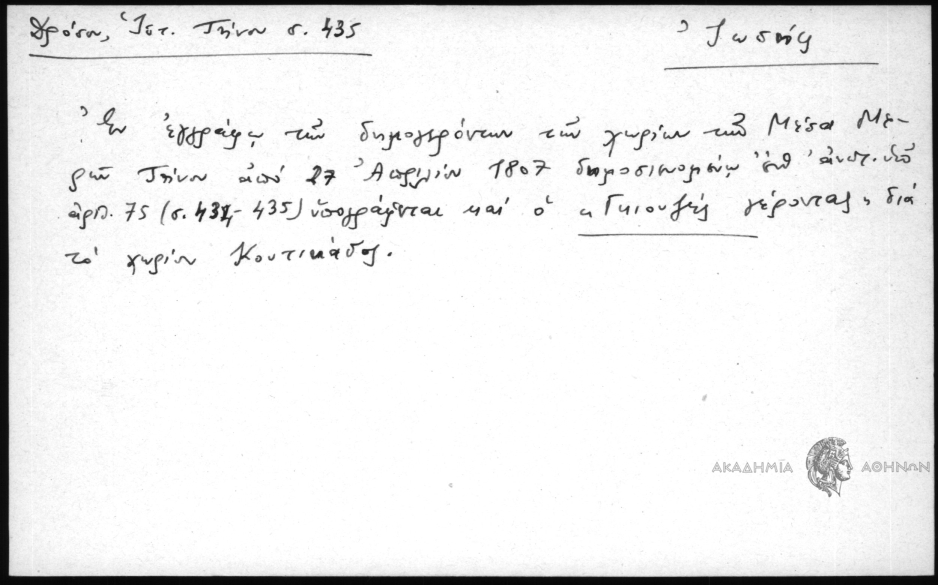 Δρόσου, Ἱστ. Τήνου σ. 435
Ἰωσήφ
Ἐν ἐγγράφῳ τῶν δημογερόντων τῶν χωρίων τῶν Μέσα Με-
ρῶν Τήνου ἀπό 27 Ἀπριλίου 1807 δημοσιευομένῳ ὑπ'
ἀρθ. 75 (σ. 434-435) ὑπογράφεται καί ὁ "Γκιουζές γέροντας" διά
τό χωρίον Κουτικάδος.
ΑΚΑΔΗΜΙΑ ΑΘΗΝΩΝ